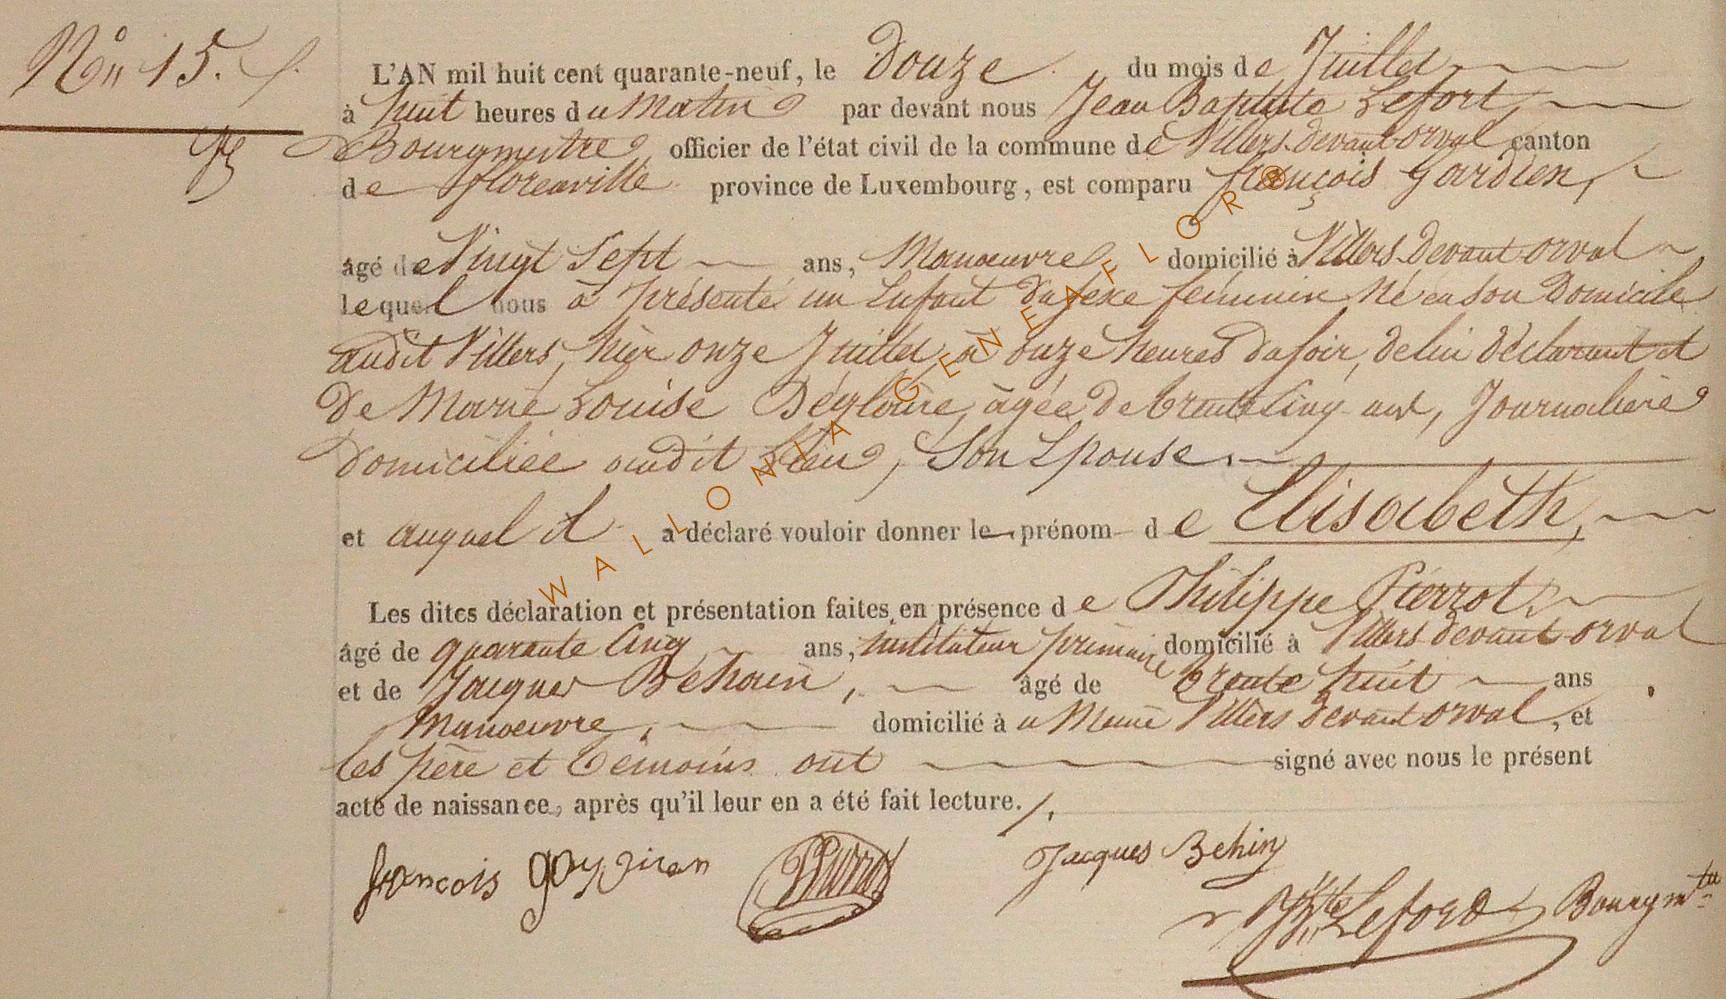 Nº 15.
L'AN mil huit cent quarante-neuf, le Douze du mois de Juillet
à huit heures du Matin par devant nous Jean Baptiste Lefort,
Bourgmestre, officier de l'état civil de la commune de Villers devant orval canton
de florenville province de Luxembourg, est comparu françois Gardien,
âgé de Vingt Sept ans, Manoeuvre domicilié à Villers devant orval
lequel nous à présenté un Enfant du sexe féminin Né en son Domicile
audit Villers, hier onze Juillet, à onze heures du soir, de lui déclarant et
De Marie Louise Dégloire, âgée de trente Cinq ans, Journalière
Domiciliée audit lieu, Son Epouse.
et auquel il a déclaré vouloir donner le prénom de Elisabeth,
Les dites déclaration et présentation faites en présence de Philippe Pierrot,
âgé de quarante Cinq ans, instituteur primaire domicilié à Villers devant orval
et de Jacques Béhain, âgé de Trente huit ans
Manoeuvre, domicilié à u Même Villers devant orval, et
les père et Témoins ont signé avec nous le présent
acte de naissance, après qu'il leur en a été fait lecture.
françois gardien PPierrot Jacques Behin
JBte Lefort Bourgmtre
WALLONIA GENEAFLORE